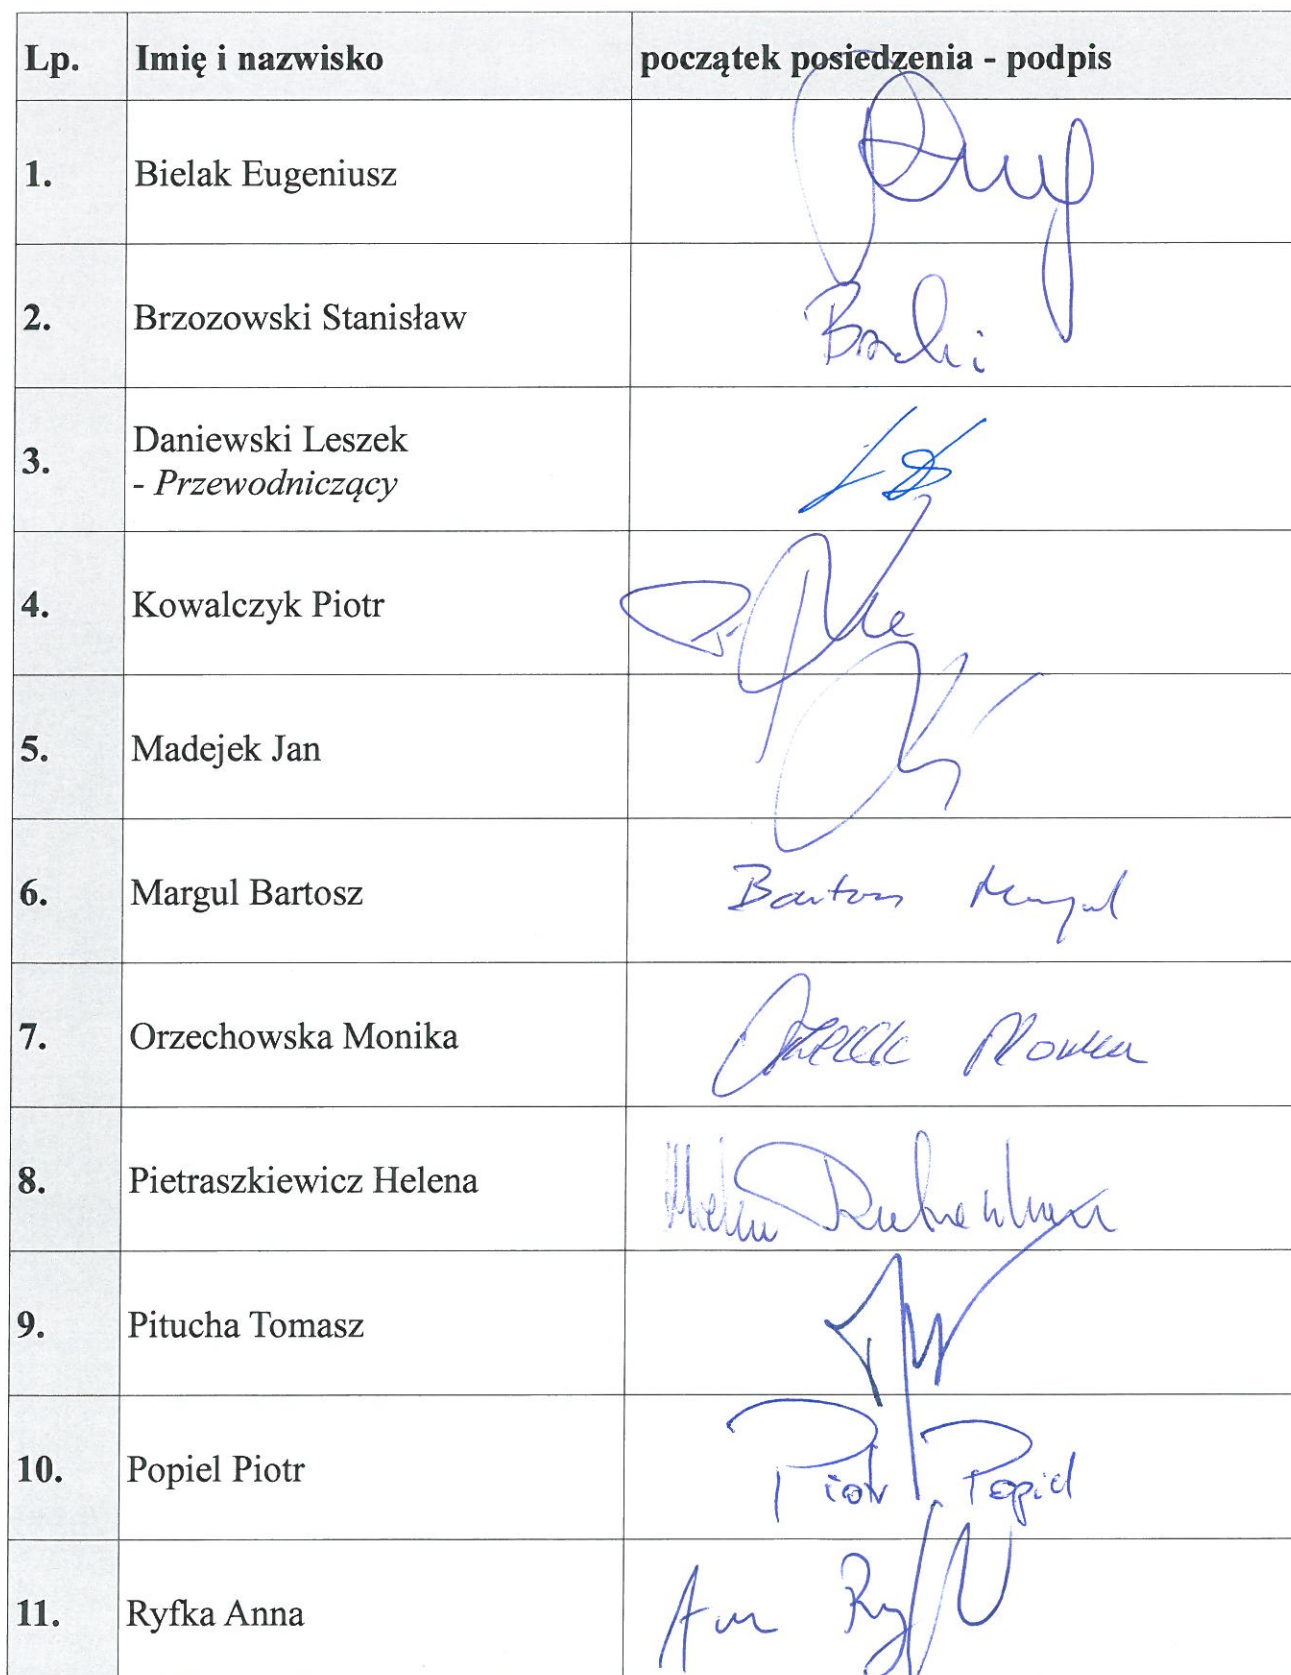 Lp. Imię i nazwisko początek posiedzenia - podpis
1. Bielak Eugeniusz
2. Brzozowski Stanisław
3. Daniewski Leszek
- Przewodniczący
4. Kowalczyk Piotr
5. Madejek Jan
6. Margul Bartosz Bartosz Margul
7. Orzechowska Monika Monika
8. Pietraszkiewicz Helena
9. Pitucha Tomasz
10. Popiel Piotr Piotr Popiel
11. Ryfka Anna